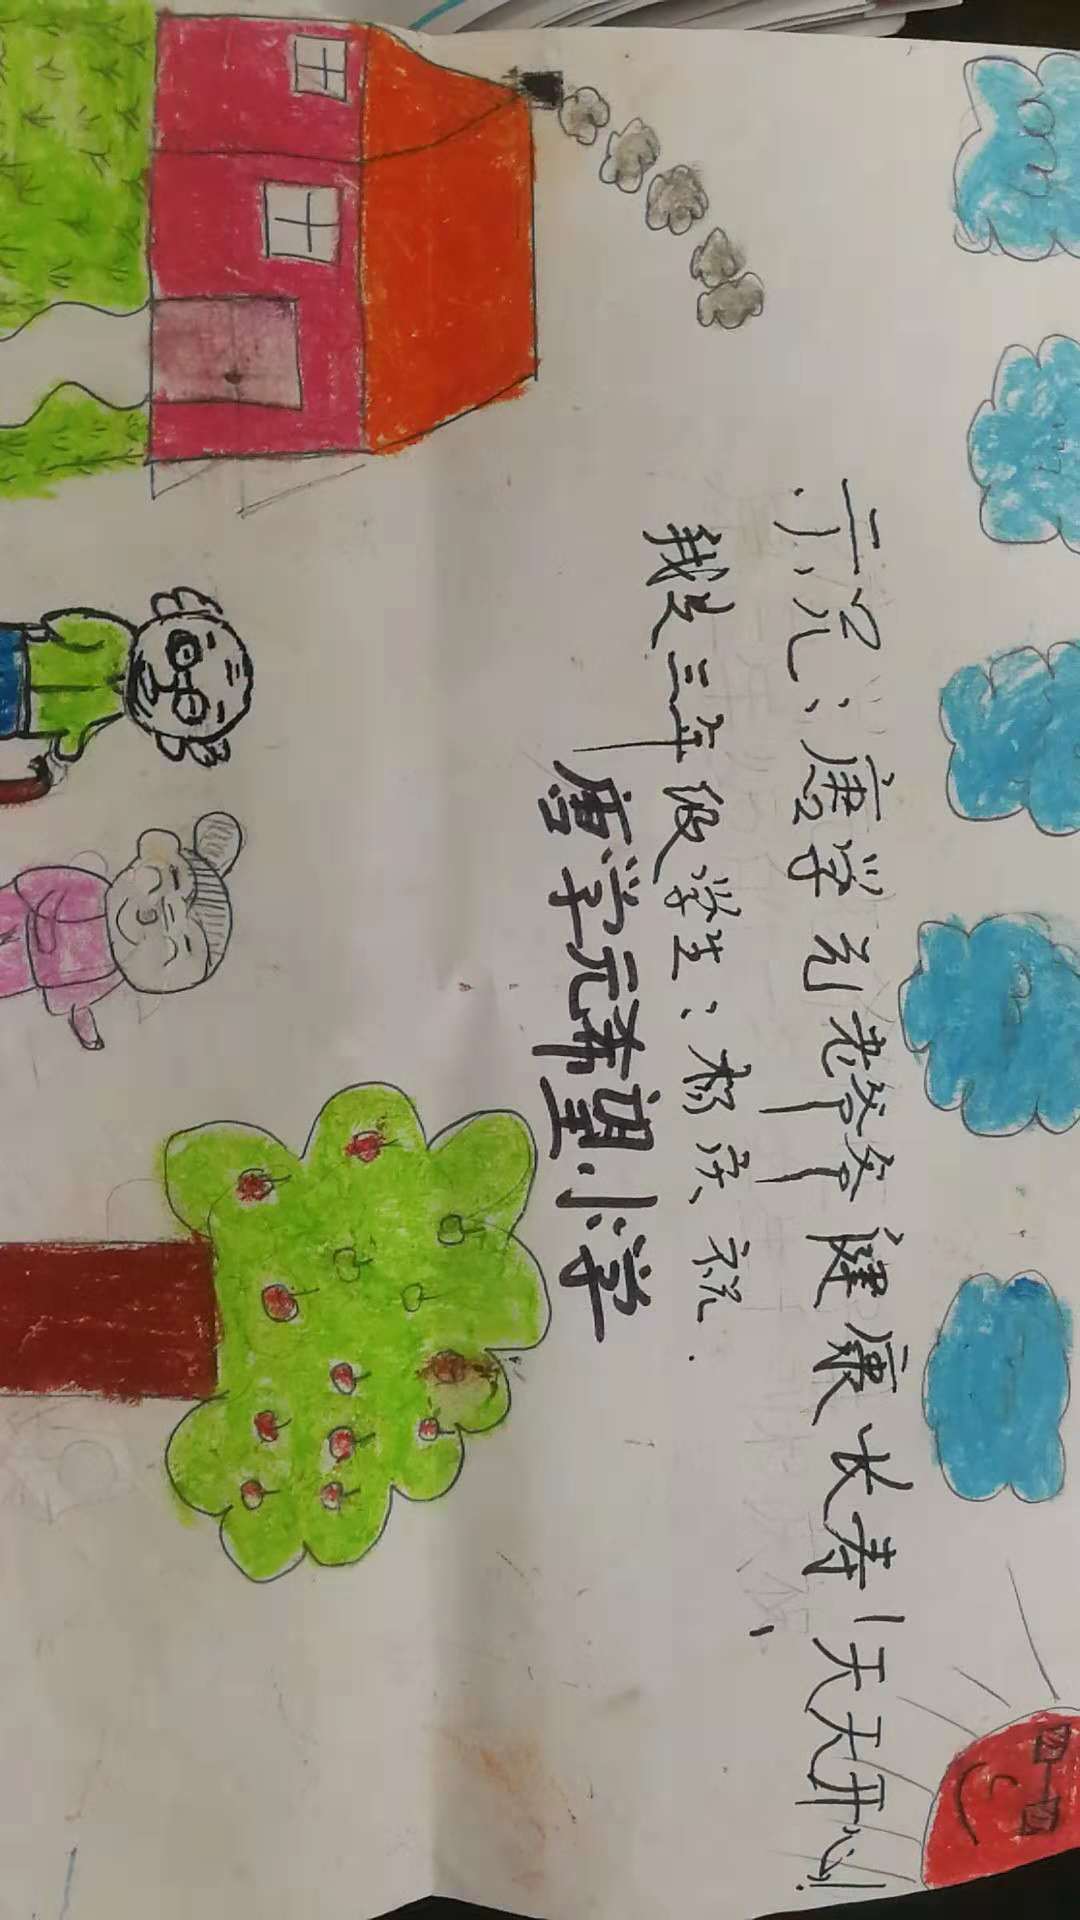 示兄：唐学元老爷爷健康长寿！天天开心！
我是三年级学生：杨庆祝.
唐学元希望小学